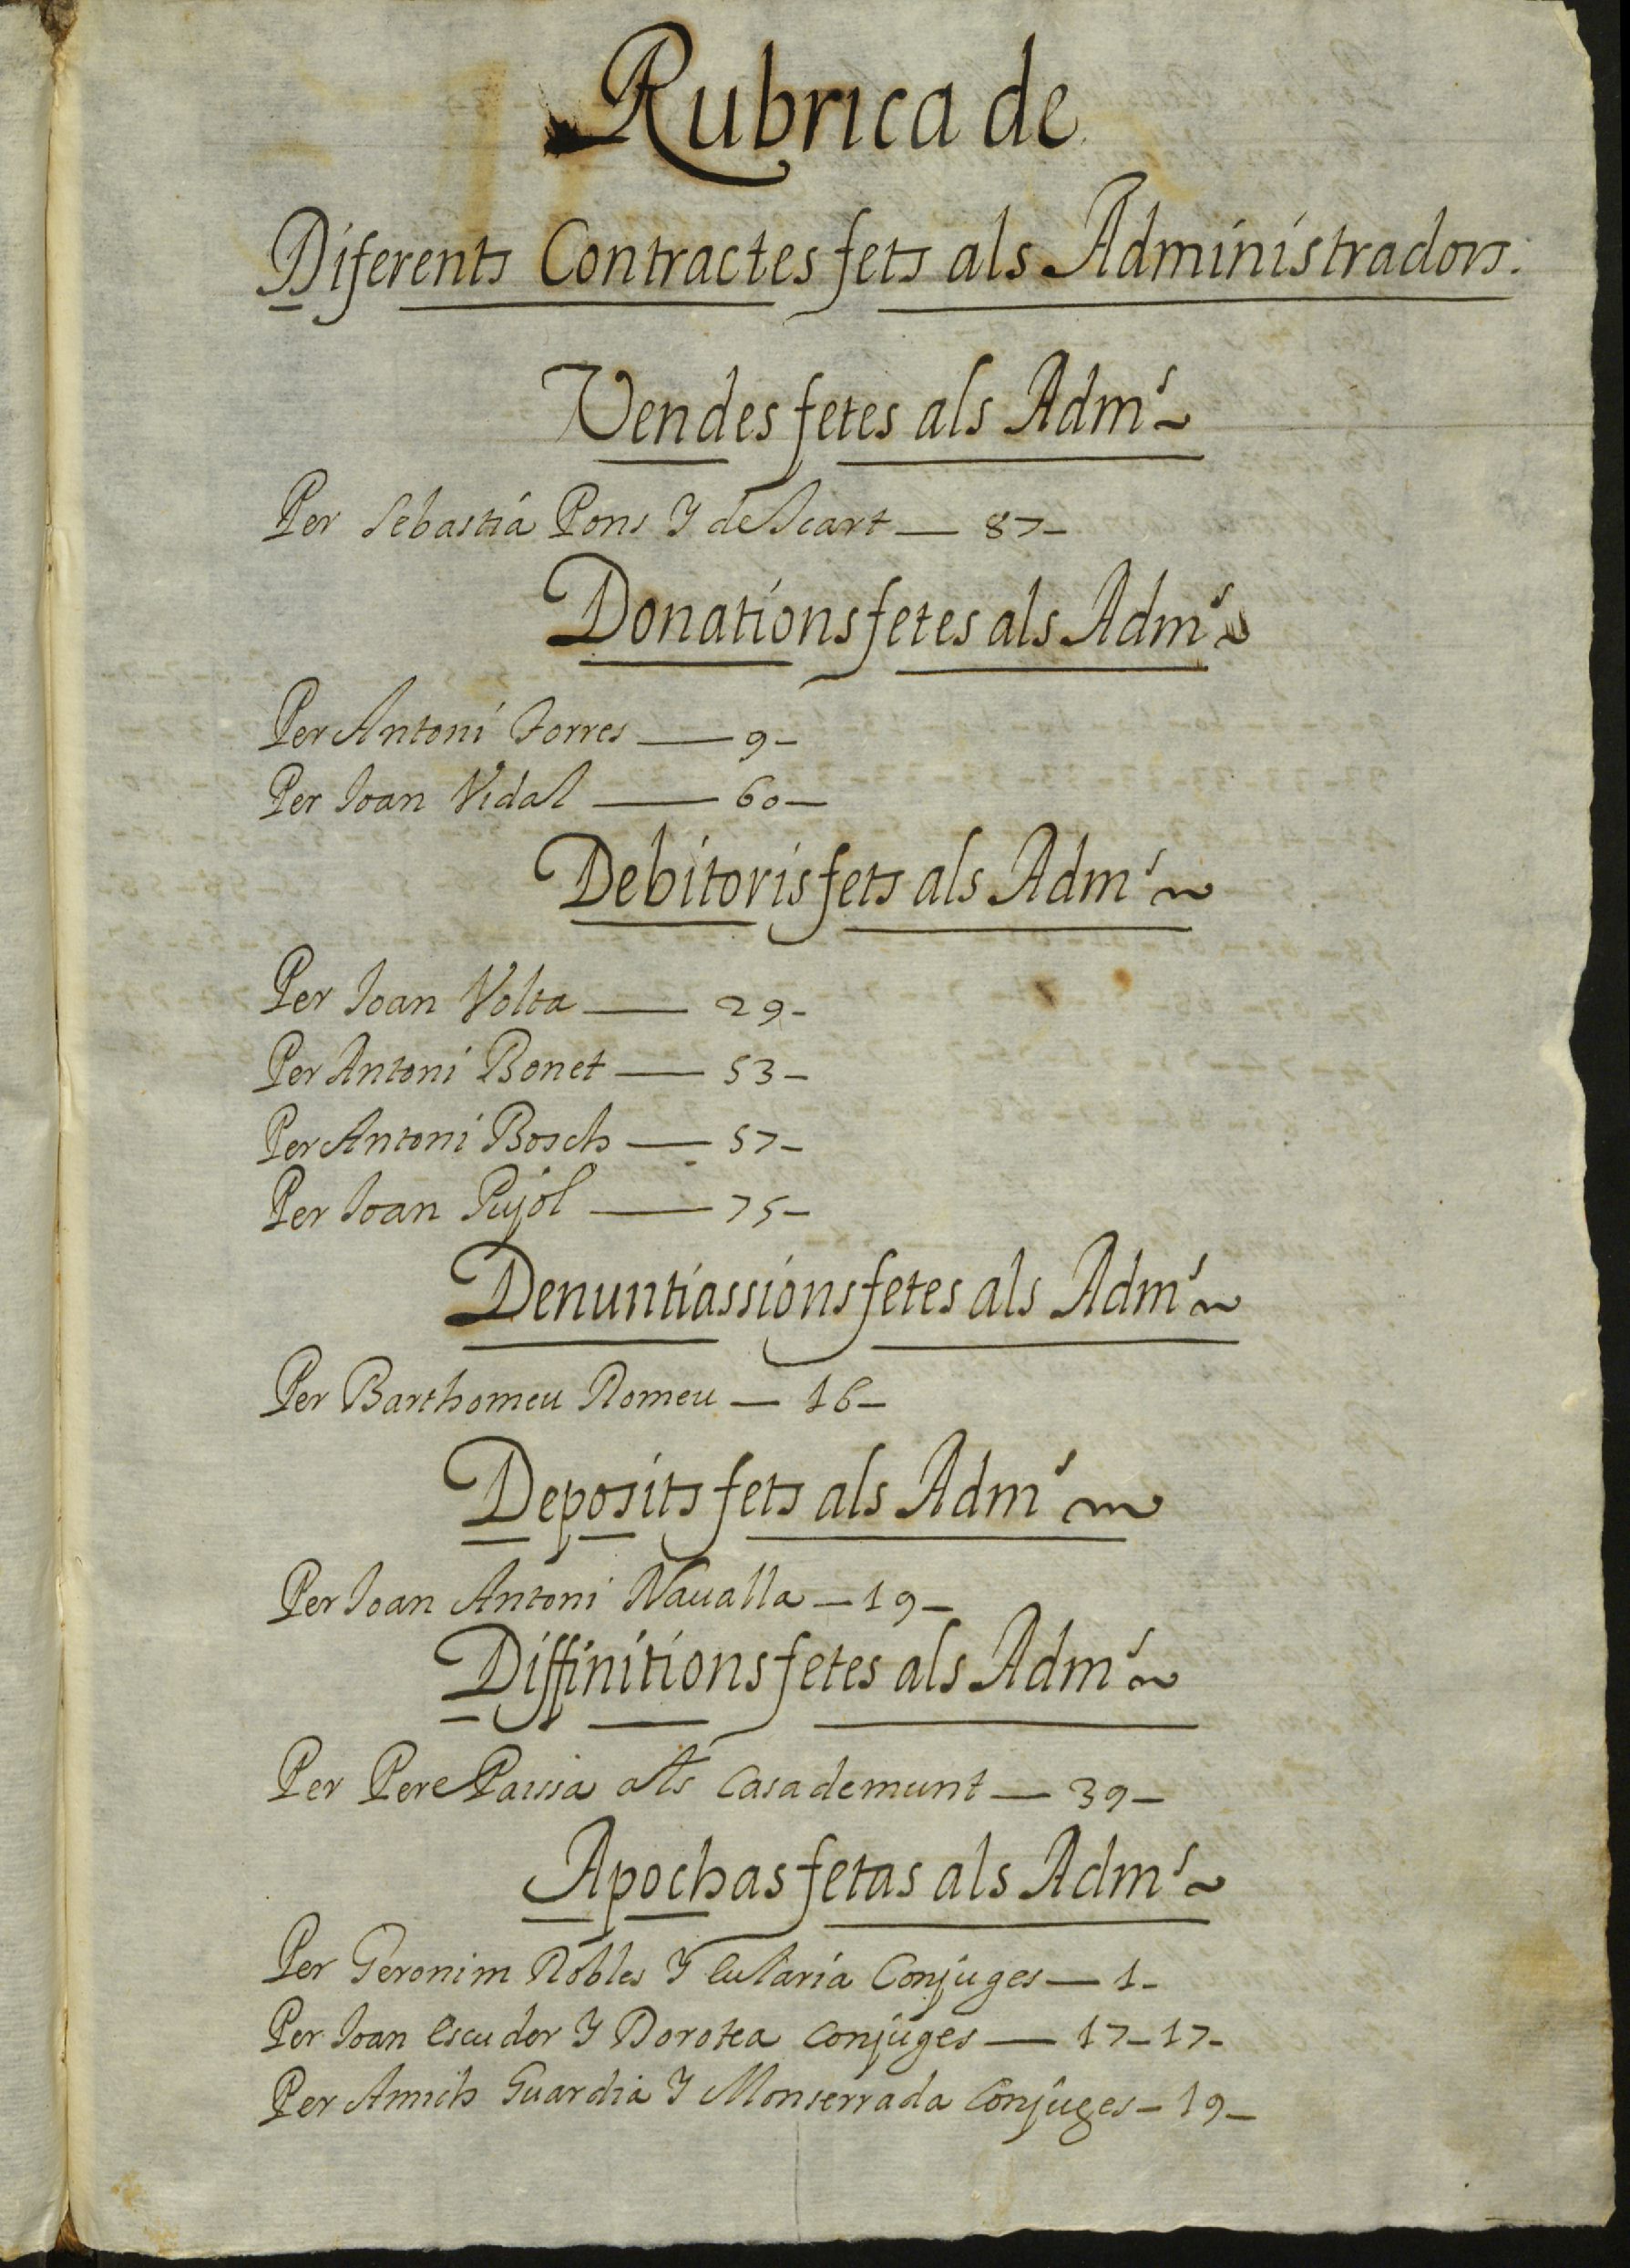 Rubrica de
Diferents Contractes fets als Administradors.
Vendes fetes als Adm.s
Per Sebastiá Pons Y deScart — 87 —
Donations fetes als Adm.s
Per Antoni Torres — 9 —
Per Ioan Vidal — 60 —
Debitoris fets als Adm.s
Per Ioan Volta — 29 —
Per Antoni Bonet — 53 —
Per Antoni Bosch — 57 —
Per Ioan Pujol — 75 —
Denuntiassions fetes als Adm.s
Per Barthomeu Romeu — 16 —
Deposits fets als Adm.s
Per Ioan Antoni Naualla — 19 —
Diffinitions fetes als Adm.s
Per Pere Paissa als Casademunt — 39 —
Apochas fetas als Adm.s
Per Geronim Robles Y Eularia Conjuges — 1 —
Per Ioan Escuder Y Dorotea Conjuges — 17 — 17 —
Per Amich Guardia Y Monserrada Conjuges — 19 —